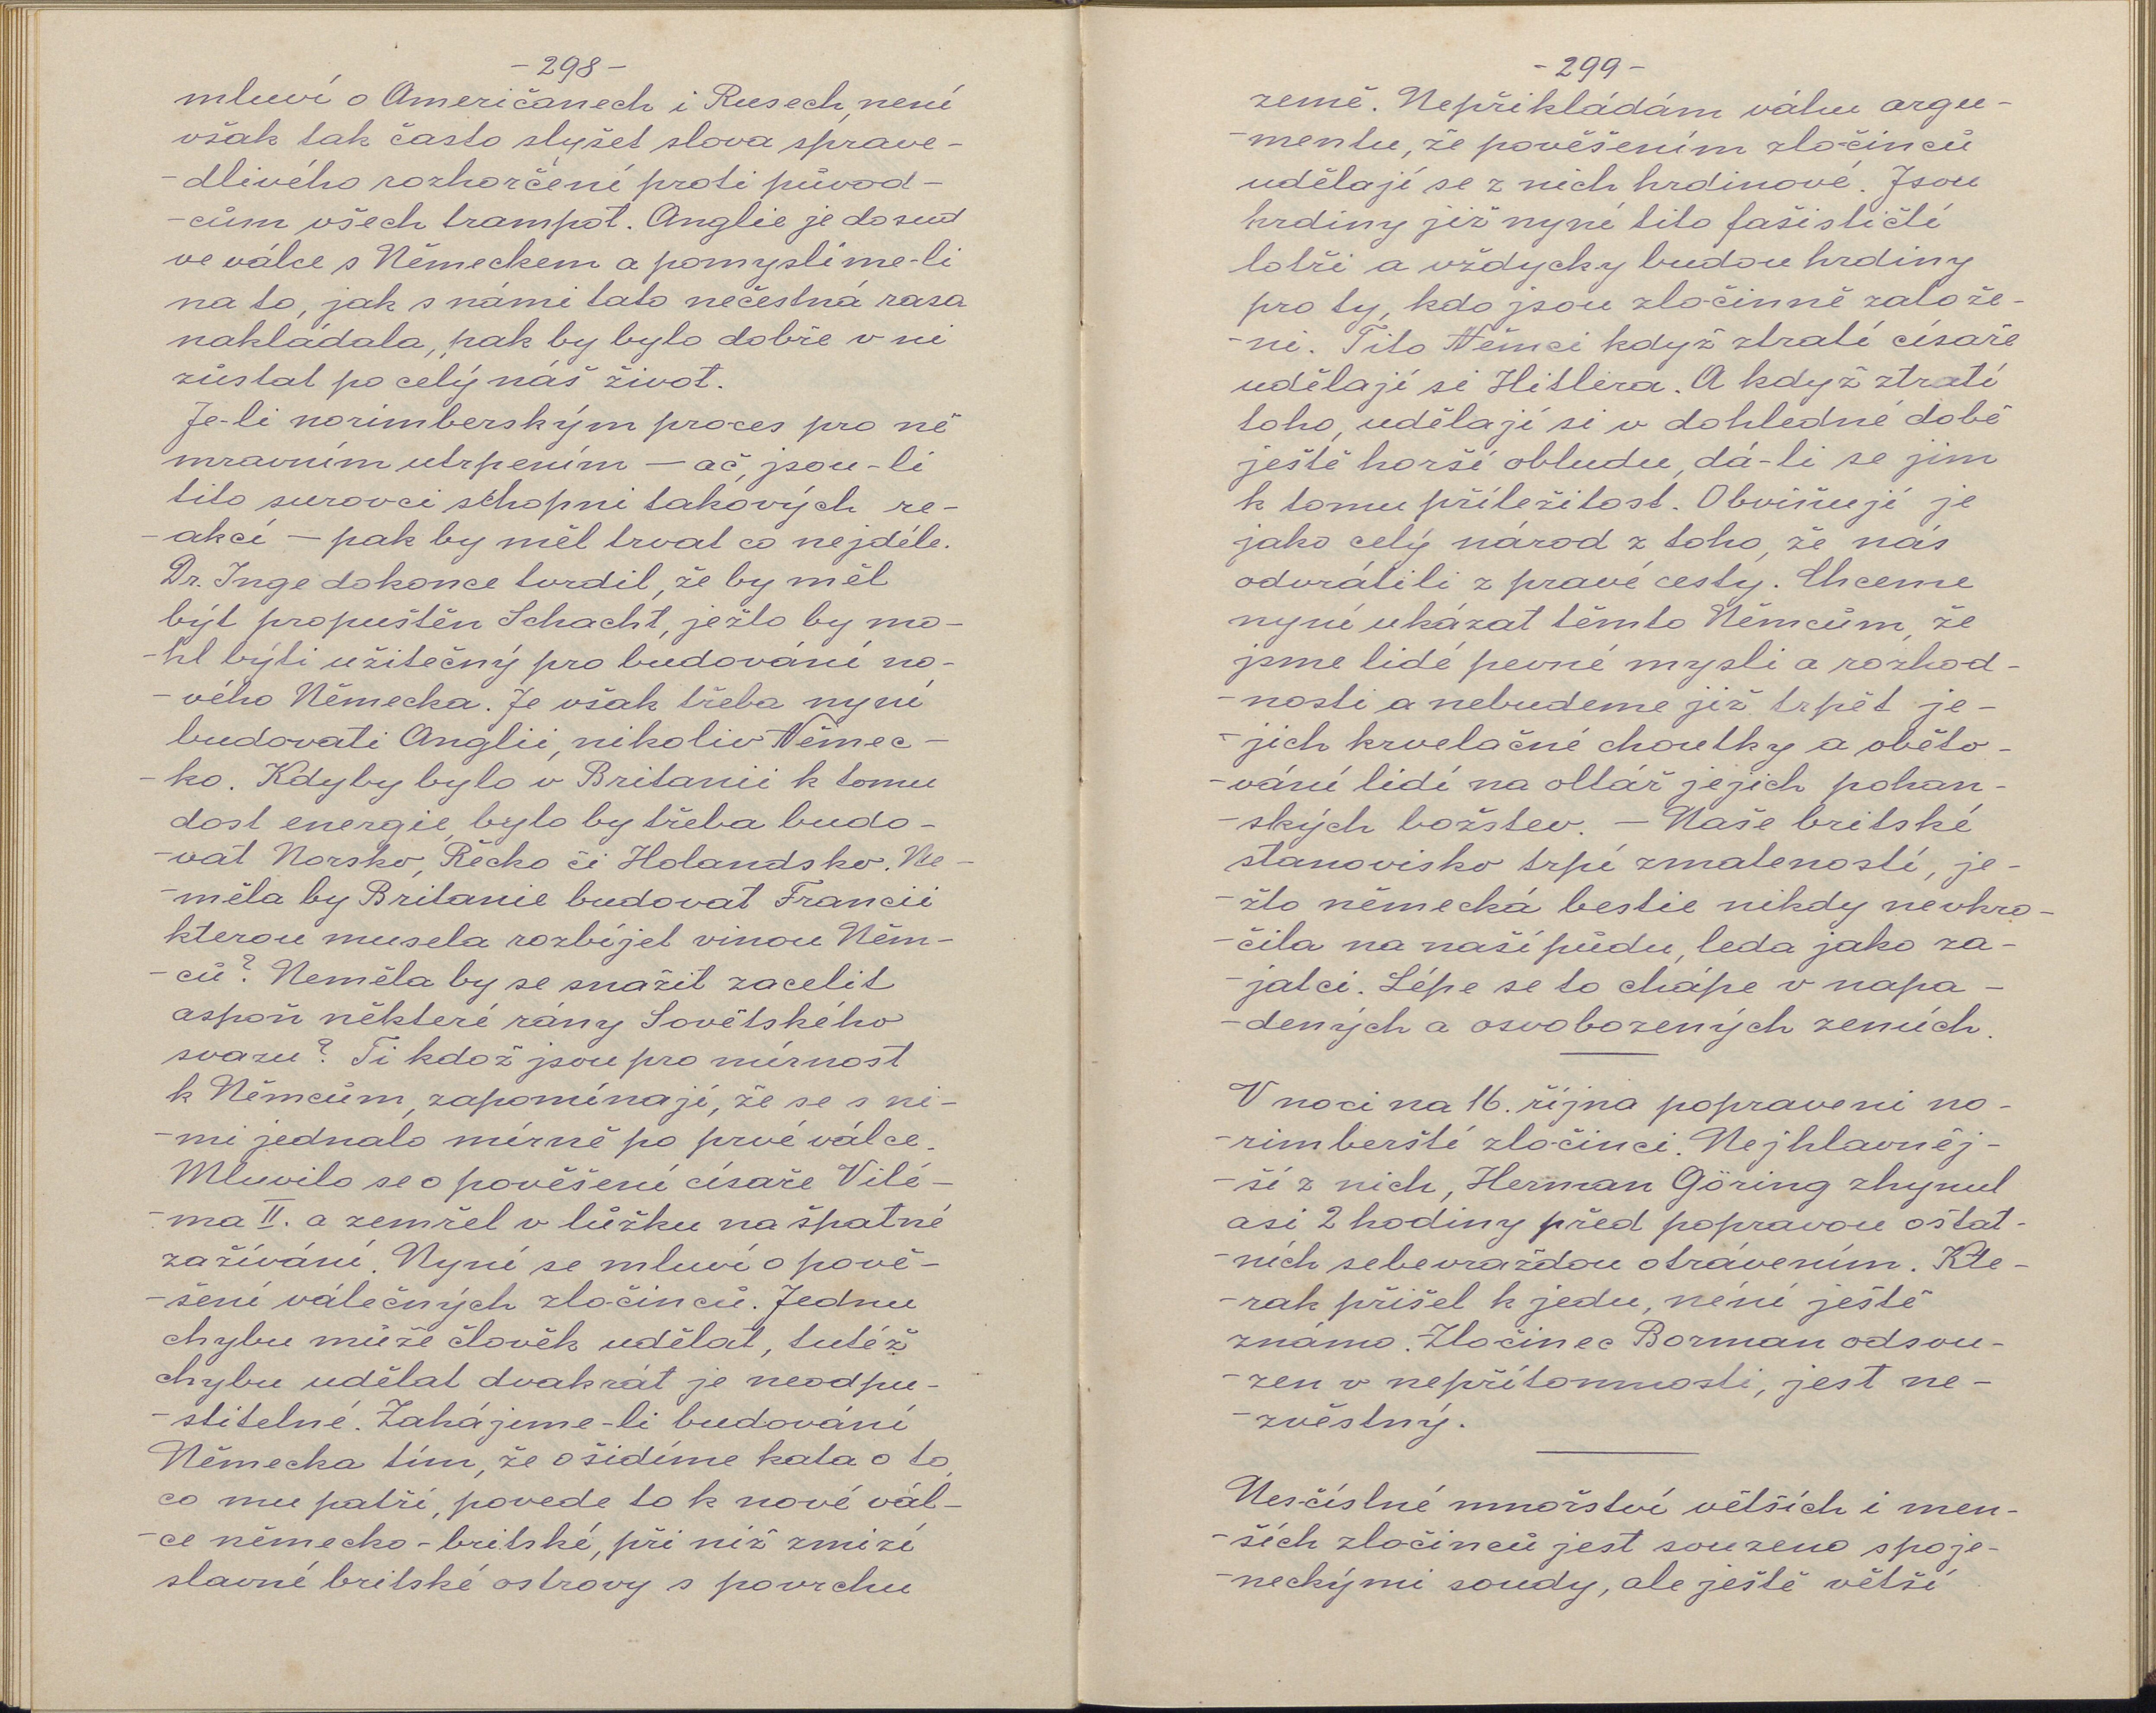 -298-
mluví o Američanech i Rusech, není
však tak často slyšet slova sprave-
-dlivého rozhorčení proti původ-
-cům všech trampot. Anglie je dosud
ve válce s Německem a pomyslíme-li
na to, jak s námi tato nečestná rasa
nakládala, pak by bylo dobře v ní
zůstat po celý náš život.
Je-li norimberským proces pro ně
mravním utrpením — ač, jsou-li
tito surovci schopni takových re-
-akcí — pak by měl trvat co nejdéle.
Dr. Inge dokonce tvrdil, že by měl
být propuštěn Schacht, ježto by mo-
-hl býti užitečný pro budování no-
-vého Německa. Je však třeba nyní
budovati Anglii, nikoliv Němec-
-ko. Kdyby bylo v Britanii k tomu
dost energie, bylo by třeba budo-
-vat Norsko, Řecko či Holandsko. Ne-
-měla by Britanie budovat Francii
kterou musela rozbíjet vinou Něm-
-ců? Neměla by se snažit zacelit
aspoň některé rány Sovětského
svazu? Ti kdož jsou pro mírnost
k Němcům, zapomínají, že se s ni-
-mi jednalo mírně po prvé válce.
Mluvilo se o pověšení císaře Vilé-
-ma II. a zemřel v lůžku na špatné
zažívání. Nyní se mluví o pově-
-šení válečných zločinců. Jednu
chybu může člověk udělat, tutéž
chybu udělat dvakrát je neodpu-
-stitelné. Zahájeme-li budování
Německa tím, že ošidíme kata o to,
co mu patří, povede to k nové vál-
-ce německo-britské, při níž zmizí
slavné britské ostrovy s povrchu
-299-
země. Nepřikládám váhu argu-
-mentu, že pověšením zločinců
udělají se z nich hrdinové. Jsou
hrdiny již nyní tito fašističtí
lotři a vždycky budou hrdiny
pro ty, kdo jsou zločinně založe-
-ni. Tito Němci když ztratí císaře
udělají si Hitlera. A když ztratí
toho, udělají si v dohledné době
ještě horší obludu, dá-li se jim
k tomu příležitost. Obviňují je
jako celý národ z toho, že nás
odvrátili z pravé cesty. Chceme
nyní ukázat těmto Němcům, že
jsme lidé pevné mysli a rozhod-
-nosti a nebudeme již trpět je-
-jich krvelačné choutky a oběto-
-vání lidí na oltář jejich pohan-
-ských božstev. — Naše britské
stanovisko trpí zmateností, je-
-žto německá bestie nikdy nevkro-
-čila na naší půdu, leda jako za-
-jatci. Lépe se to chápe v napa-
-dených a osvobozených zemích.
V noci na 16. října popraveni no-
-rimberští zločinci. Nejhlavněj-
-ší z nich, Herman Göring zhynul
asi 2 hodiny před popravou ostat-
-ních sebevraždou otrávením. Kte-
-rak přišel k jedu, není ještě
známo. Zločinec Borman odsou-
-zen v nepřítomnosti, jest ne-
-zvěstný.
Nesčíslné množství větších i men-
-ších zločinců jest souzeno spoje-
-neckými soudy, ale ještě větší